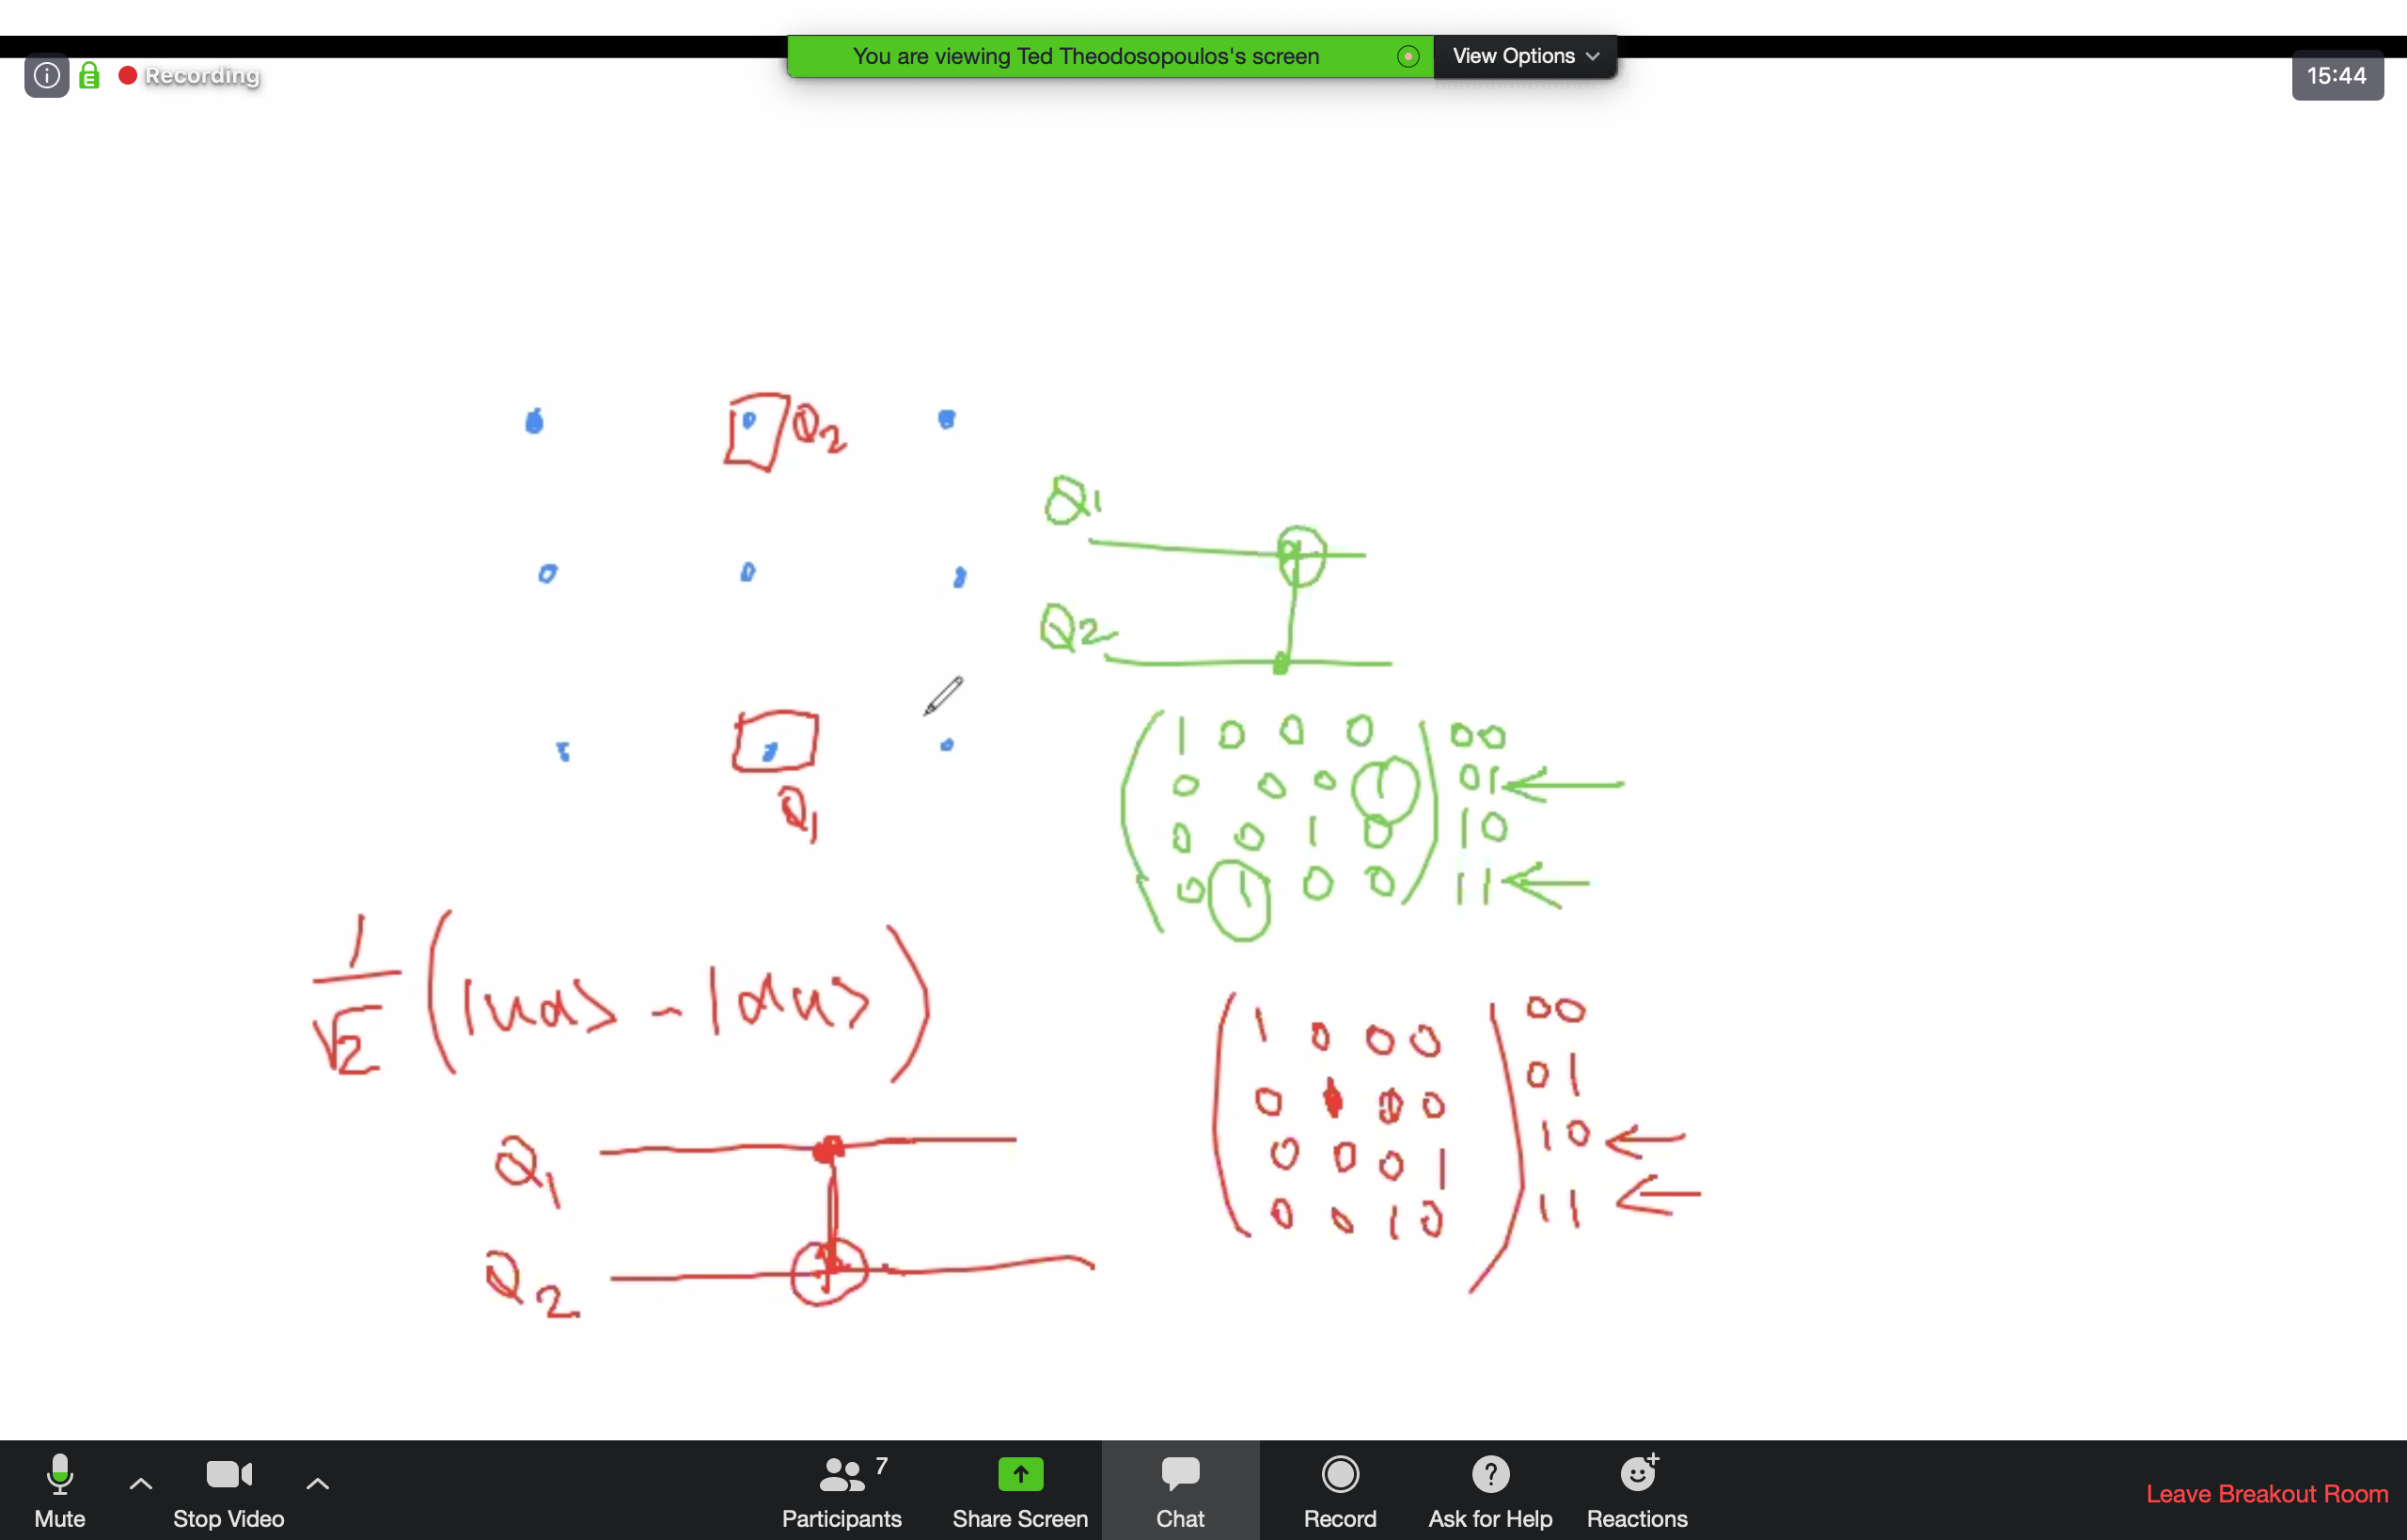 You are viewing Ted Theodosopoulos's screen View Options
Recording
15:44
Q2
Q1
Q2
Q1
1 0 0 0 00
0 0 0 1 01
0 0 1 0 10
0 1 0 0 11
1/√2 (|ud> - |du>)
Q1
Q2
1 0 0 0 00
0 1 0 0 01
0 0 0 1 10
0 0 1 0 11
Mute
Stop Video
7
Participants
Share Screen
Chat
Record
Ask for Help
Reactions
Leave Breakout Room